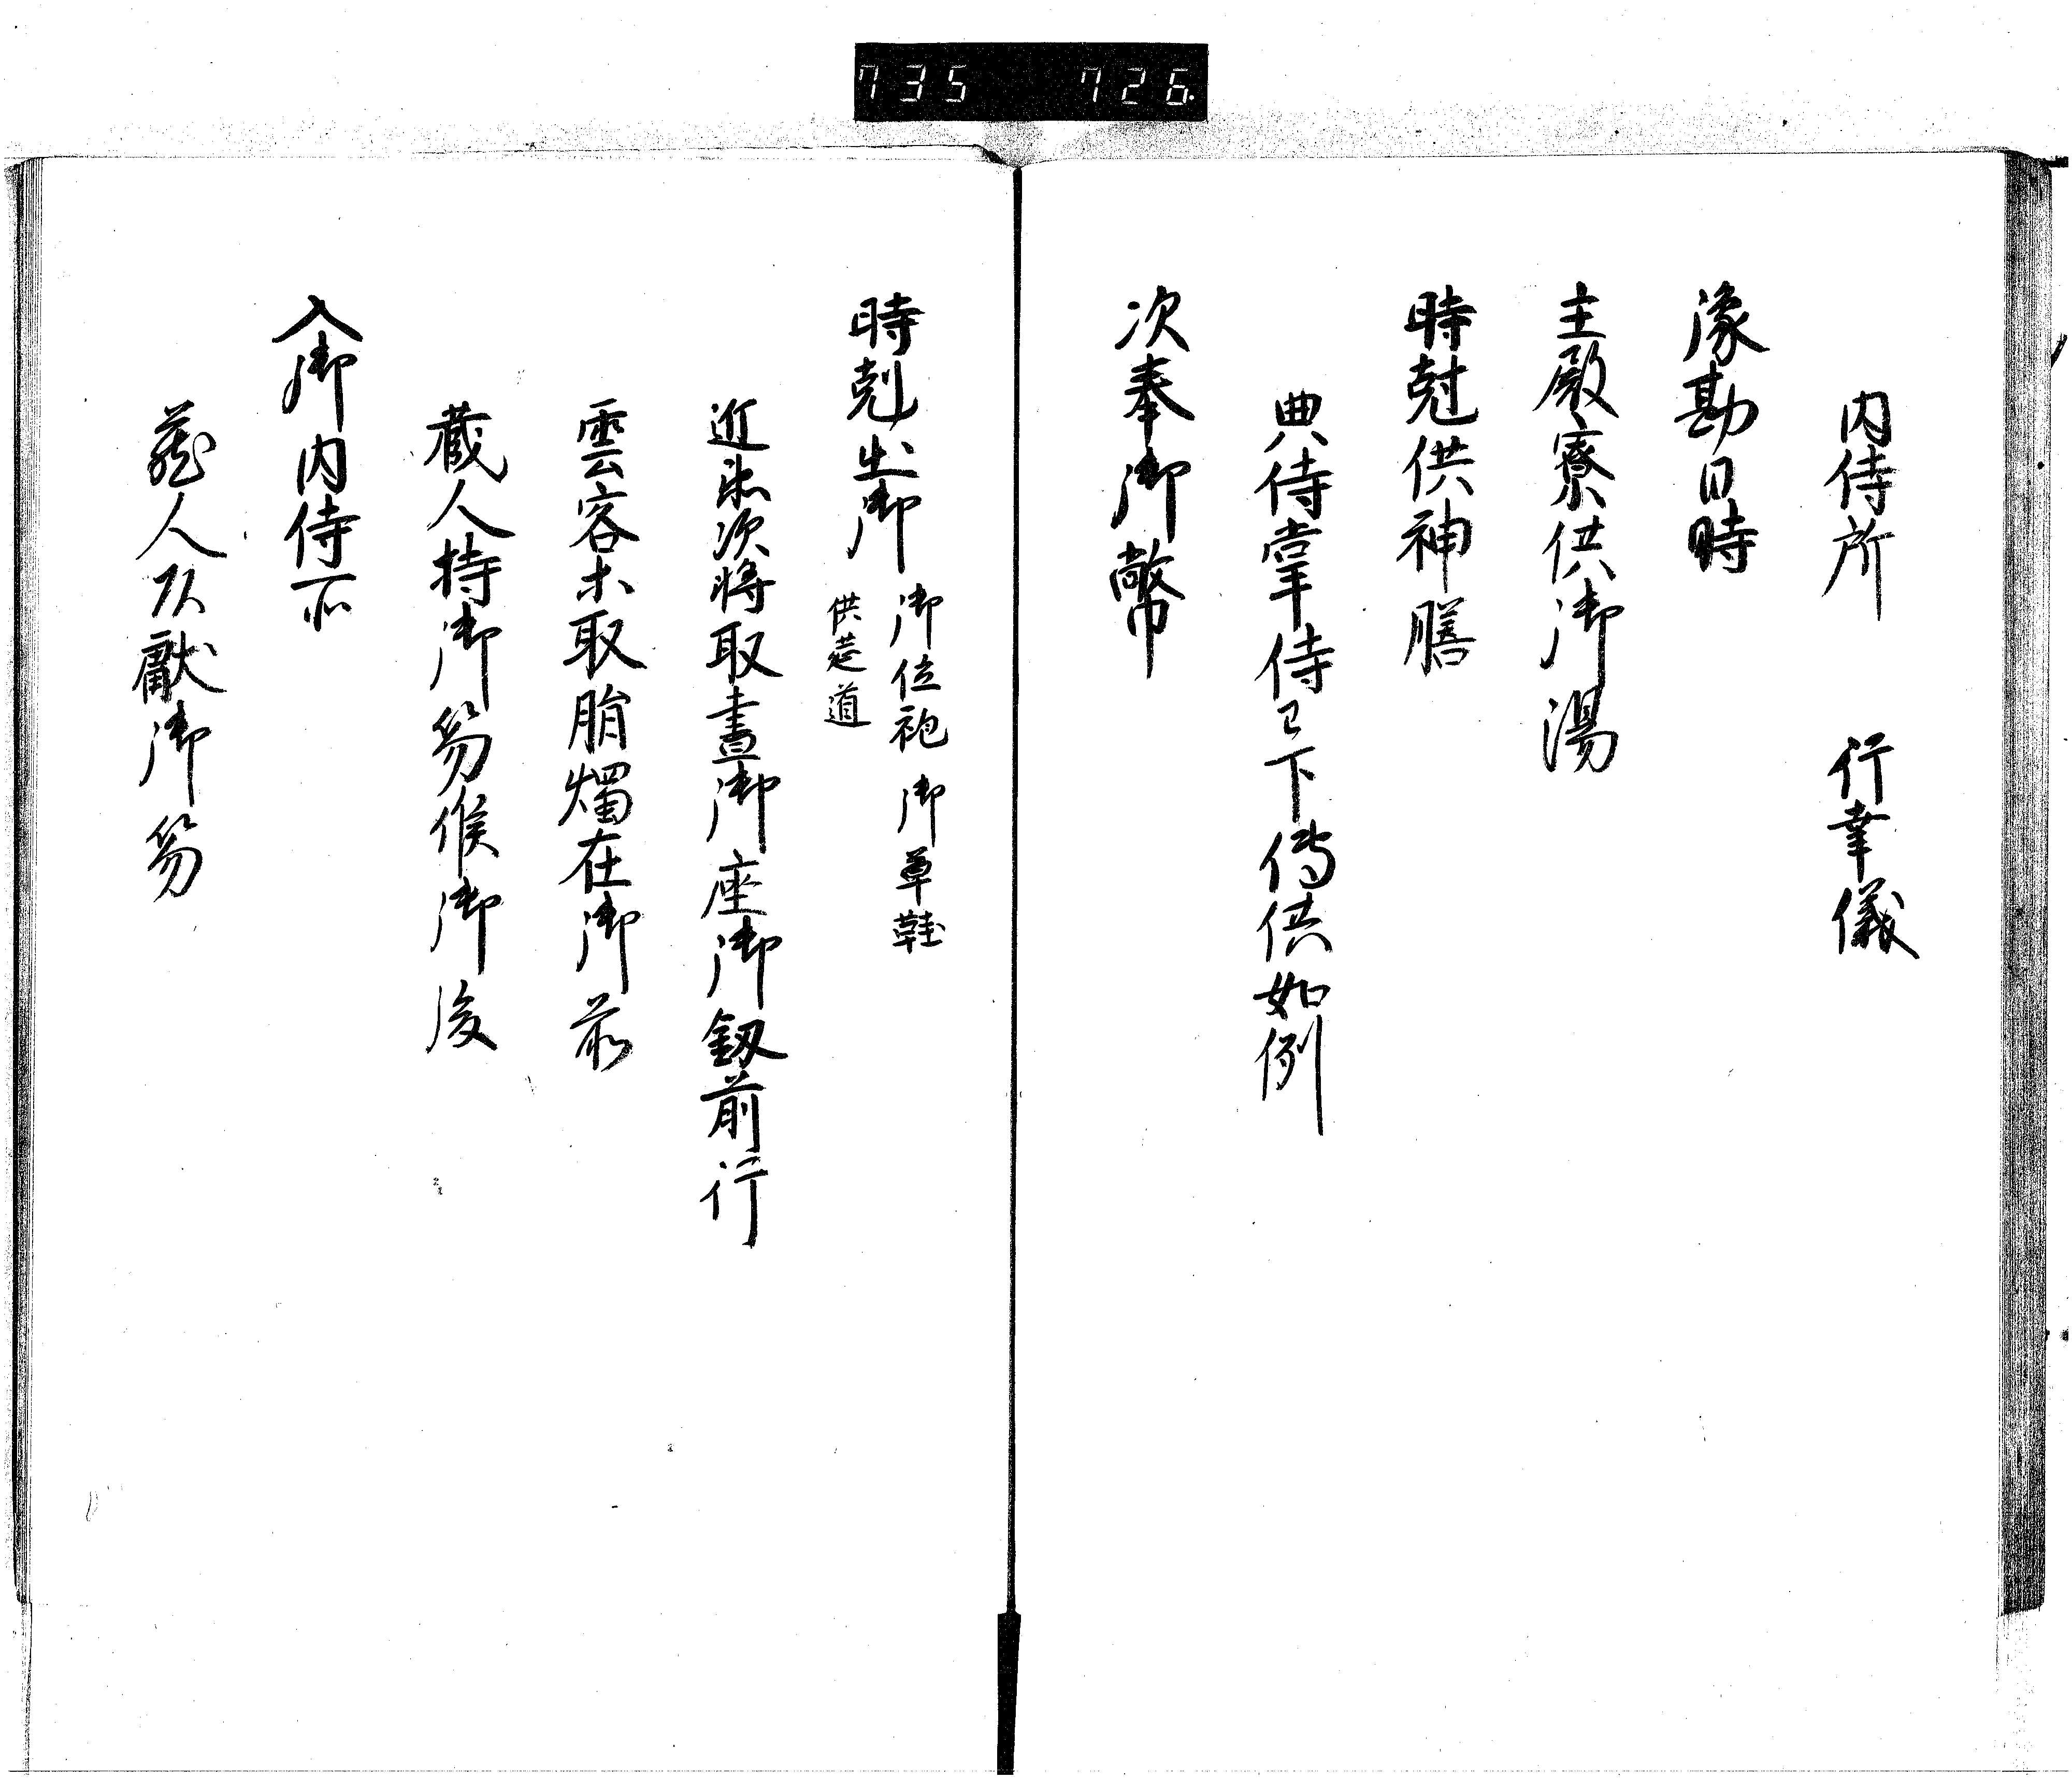 735 726
内侍所 行幸儀
豫勘日時
主殿寮供御湯
時尅供神膳
典侍掌侍已下傳供如例
次奉御幣
時剋出御 御位袍 御草鞋
供莚道
近衛次将取晝御座御釼前行
雲客等取脂燭在御前
蔵人持御笏候御後
入御内侍所
蔵人頭献御笏